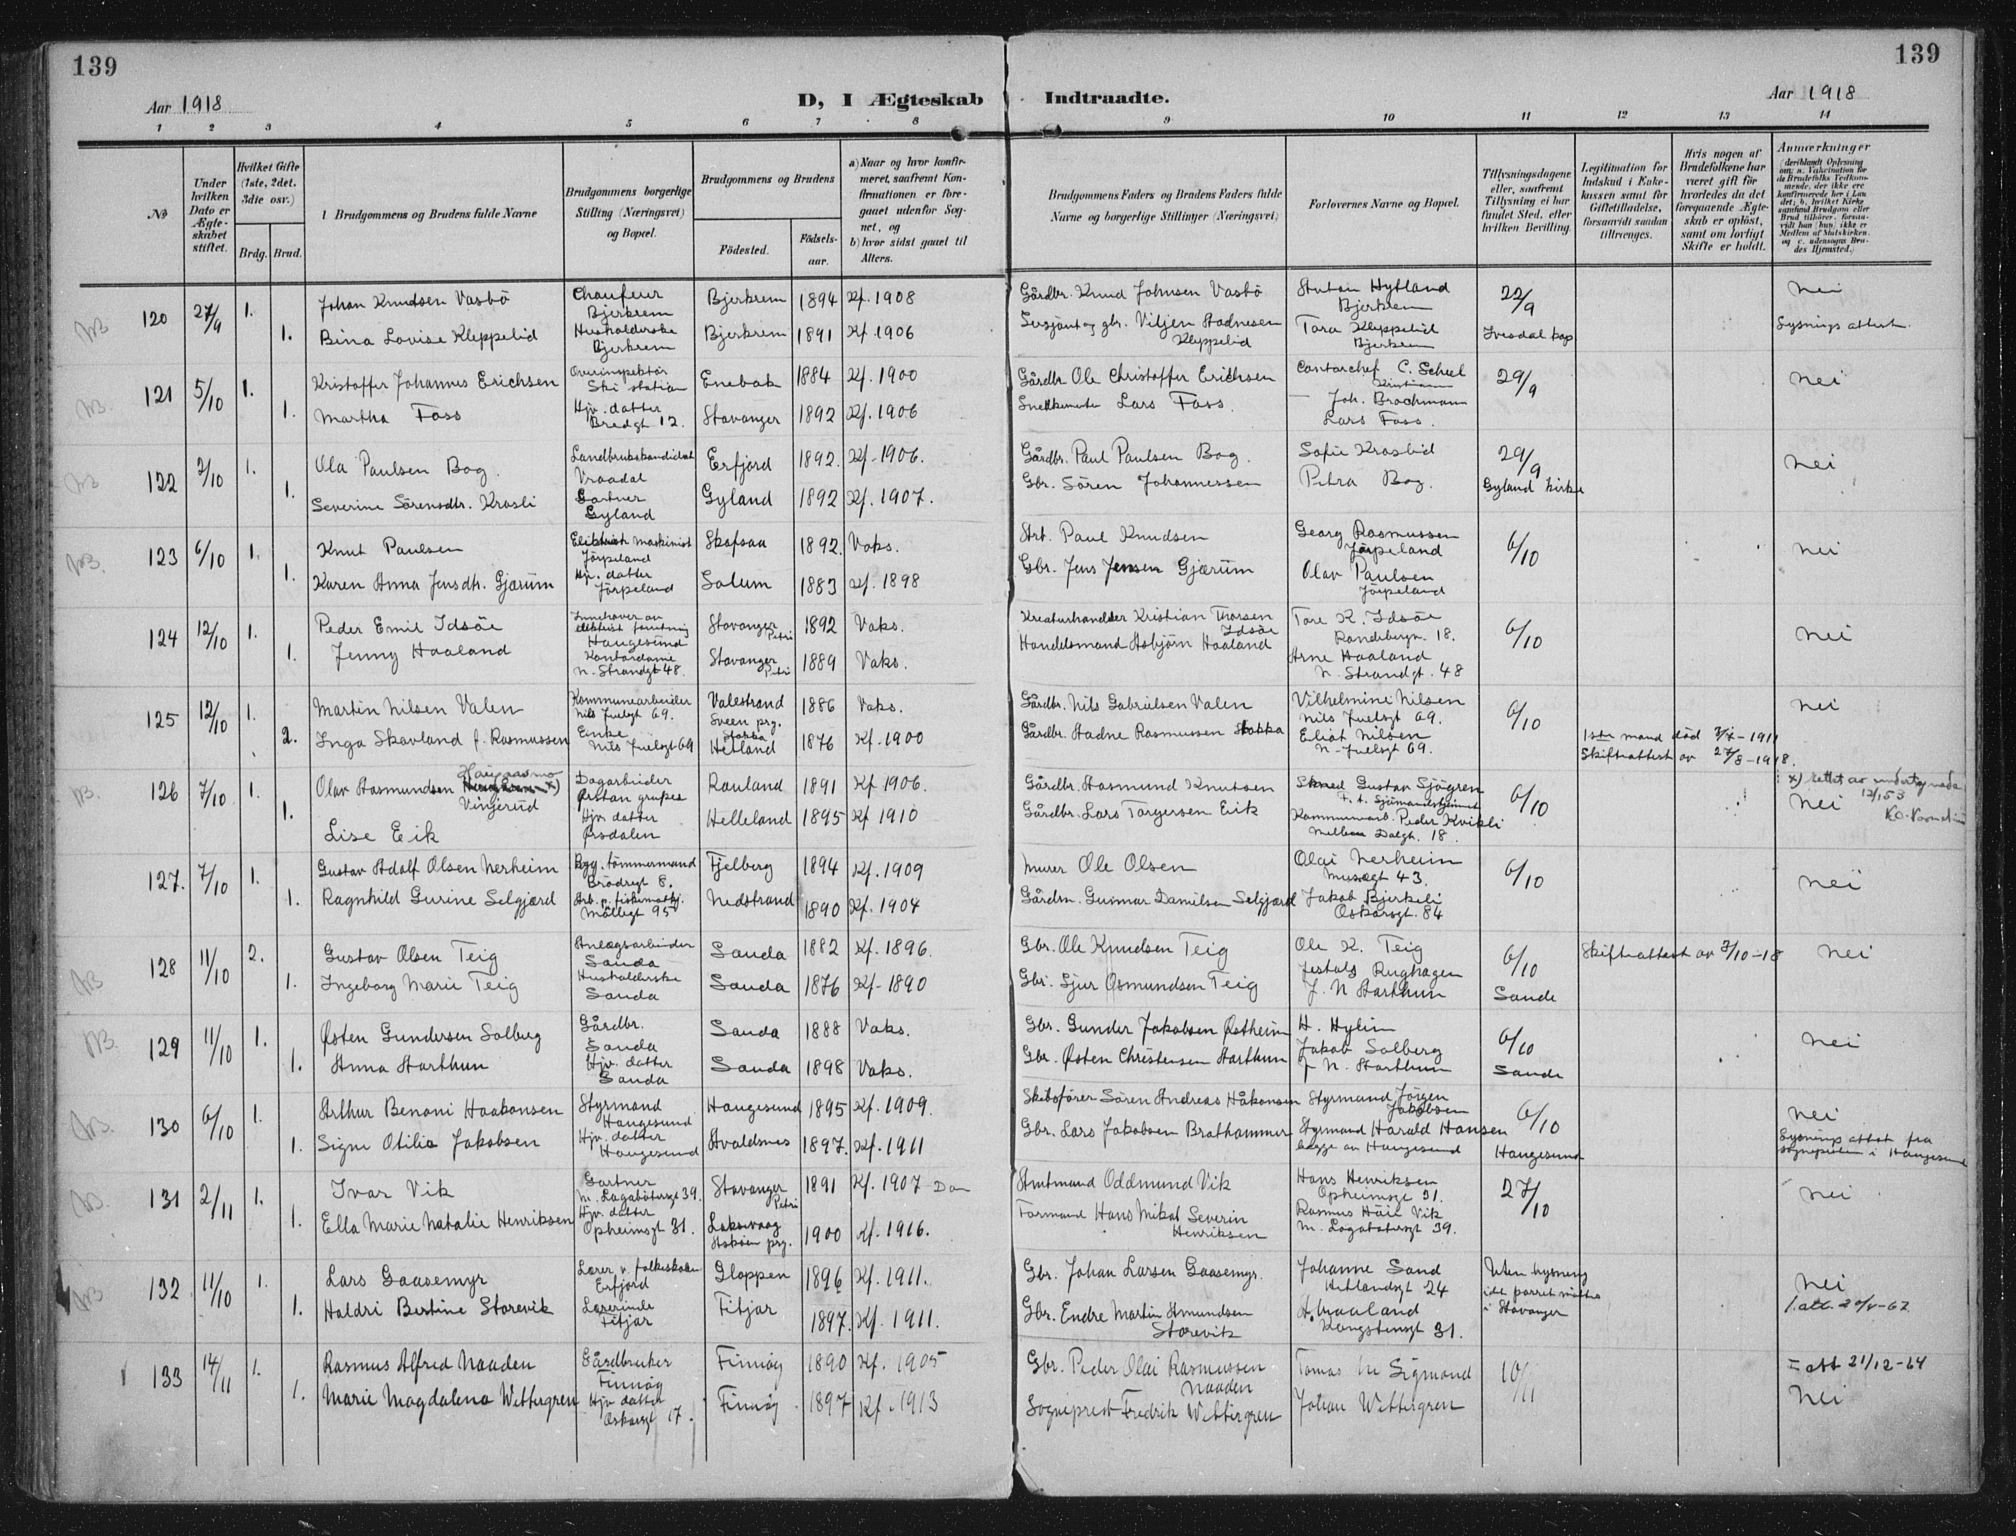 139
139
Aar 1918
D, I Ægteskab Indtraadte.
Aar 1918
1 2 3 4 5 6 7 8 9 10 11 12 13 14
No
Under hvilken Dato er Ægteskabet stiftet.
Hvilket Gifte (1ste, 2det, 3die osv.)
Brdg. Brud.
Brudgommens og Brudens fulde Navne
Brudgommens borgerlige Stilling (Næringsvei) og Bopæl.
Brudgommens og Brudens
Fødested.
Fødselsaar.
a) Naar og hvor konfirmeret, saafremt Konfirmationen er foregaaet udenfor Sognet, og
b) hvor sidst gaaet til Alters.
Brudgommens Faders og Brudens Faders fulde Navne og borgerlige Stillinger (Næringsvei)
Forlovernes Navne og Bopæl.
Tillysningsdagene eller, saafremt Tillysning ei har fundet Sted, efter hvilken Bevilling.
Legitimation for Indskud i Enkekassen samt for Giftetilladelse, forsaavidt saadan tiltrænges.
Hvis nogen af Brudefolkene har været gift før hvorledes da det foregaaende Ægteskab er opløst, samt om lovligt Skifte er holdt.
Anmærkninger
120 27/9 1. Johan Knudsen Vasbö Chauffeur Bjerkrem Bjerkrem 1894 Kf. 1908 Gårdbr. Knud Johnsen Vasbö Hytland Bjerkrem 22/9 nei
1. Bina Lovise Kleppelid Husholderske Bjerkrem Bjerkrem 1891 Kf. 1906 Sersjant og gbr. Viljen Stadnesen Kleppelid Tora Kleppelid Bjerkrem Ivesdal kap Lysnings attest
121 5/10 1. Kristoffer Johannes Erichsen Overinspektör Ski station Enebak 1884 Kf. 1900 Gårdbr. Ole Christoffer Erichsen Contorchef C. Scheel Kristiania 29/9 nei
1. Martha Foss Hjv. datter Bredgt 12. Stavanger 1892 Kf. 1906 Lars Foss. Joh. Brochmann Lars Foss.
122 2/10 1. Ola Paulsen Bog. Landbrukskandidat Vraadal Erfjord 1892. Kf. 1906. Gårdbr. Paul Paulsen Bog. Sofie Krosli 29/9 nei
1. Severine Sörensdtr. Krosli Gartner Gyland Gyland 1892 Kf. 1907. Gbr. Sören Johannessen Petra Bog. Gyland kirke
123 6/10 1. Knut Paulsen Elektrisk maskinist Jörpeland Skafsaa 1892. Vaks. Arb. Paul Knudsen Georg Rasmussen Jörpeland 6/10 nei
1. Karen Anna Jensdtr. Gjærum Hjv. datter Jörpeland Solum 1883 Kf. 1898 Gbr. Jens Jensen Gjærum Olav Paulsen Jörpeland
124 12/10 1. Peder Emil Idsöe Innehaver av elektrisk forretning Haugesund Stavanger Petri 1892 Vaks. Kreaturhandler Kristian Thorsen Idsöe Tore K. Idsöe Randebergv. 18. 6/10 nei
1. Jenny Haaland Kontordame N. Strandgt 48. Stavanger Petri 1889 Vaks. Handelsmand Asbjörn Haaland Arne Haaland N. Strandgt. 48
125 12/10 1. Martin Nilsen Valen Kommunearbeider Nils Juelsgt 69. Valestrand Sveen prg. 1886 Vaks. Gårdbr. Nils Gabrielsen Valen Vilhelmine Nilsen Nils Juelsgt 69. 6/10 nei
2. Inga Skavland f. Rasmussen Enke Nils Juelsgt 69 Stokka Hetland 1876 Kf. 1900 Gårdbr. Stadne Rasmussen Stokka Eliot Nilsen N. Juelsgt 69. 1ste mand död 3/4 - 1911 Skifteattest av 27/8 - 1918.
126 7/10 1. Olav Aasmundsen Haugsrud x) Vinjerud Dagarbeider Ørsdalen gruber Rauland 1891 Kf. 1906. Gårdbr. Aasmund Knutsen Gustav Sjögren 6/10 nei x) rettet av undertegnede 12/1 53
1. Lise Eik Hjv. datter Ørsdalen Helleland 1895 Kf 1910 Gårdbr. Lars Torgersen Eik Kommunearb. Peder Kvikli Mellem Dalgt. 18.
127. 7/10 1. Gustav Adolf Olsen Nerheim Byg. tömmermand Brödregt 8. Fjelberg 1894 Kf. 1909 Murer Ole Olsen Olai Nerheim Musægt 43. 6/10 nei
1. Ragnhild Gurine Selgjærd Arb. p. fiskematfj. Möllegt 95 Nedstrand 1890 Kf. 1904 Gårdm. Gunnar Danielsen Selgjærd Jakob Bjerkeli Oskarsgt. 84
128 11/10 2. Gustav Olsen Teig Anlægsarbeider Sauda Sauda 1882 Kf. 1896. Gbr. Ole Knudsen Teig Ole K. Teig 6/10 Skifteattest av 3/10 - 18 nei
1. Ingeborg Marie Teig Husholderske Sauda Sauda 1876 Kf. 1890 Gbr. Sjur Osmundsen Teig Rughagen J. N. Harthun Saude
129 11/10 1. Østen Gundersen Solberg Gårdbr. Sauda Sauda 1888 Vaks. Gbr. Gunder Jakobsen Østheim H. Hylin Jakob Solberg 6/10 nei
1. Anna Harthun Hjv. datter Sauda Sauda 1898 Vaks. Gbr. Østen Christensen Harthun J. N. Harthun Saude
130 6/10 1. Arthur Benoni Haakonsen Styrmand Haugesund Haugesund 1895 Kf. 1909. Skibsförer Sören Andreas Håkonsen Styrmand Jörgen Jakobsen 6/10 nei
1. Signe Otilia Jakobsen Hjv. datter Haugesund Avaldsnes 1897. Kf. 1911 Gbr. Lars Jakobsen Brathammer Styrmand Harald Hansen begge av Haugesund Haugesund Lysnings attest fra sognepresten i Haugesund
131 2/11 1. Ivar Vik Gartner M. Lagabötersgt 39. Stavanger Petri 1891 Kf. 1907 Dom Amtmand Oddmund Vik Hans Henriksen Opheimsgt 31. 27/10 nei
1. Ella Marie Natalie Henriksen Hjv. datter Opheimsgt 31. Laksevaag Askøen prg. 1900 Kf. 1916. Formand Hans Mikal Severin Henriksen Rasmus Höie Vik M. Lagabötersgt 39.
132 11/10 1. Lars Gaasemyr Lærer v. folkeskolen Erfjord Gloppen 1896 Kf. 1911. Gbr. Johan Larsen Gaasemyr. Johanne Sand Hetlandsgt 24 Uten lysning idet parret viedes i Stavanger nei
1. Haldri Bertine Storevik Lærerinde Fitjar Fitjar 1897. Kf. 1911. Gbr. Endre Martin Amundsen Storevik A. Haaland Kongstensgt 31. 1. att. 20/5-62
133 14/11 1. Rasmus Alfred Naaden Gårdbruker Finnöy Finnöy 1890 Kf. 1905 Gbr. Peder Olai Rasmussen Naaden Tomas M Sigmond 10/11 I att 21/12-64
1. Marie Magdalena Wettergren Hjv. datter Oskarsgt 17. Finnöy 1897 Kf. 1913 Sogneprest Fredrik Wettergren Johan Wettergren nei